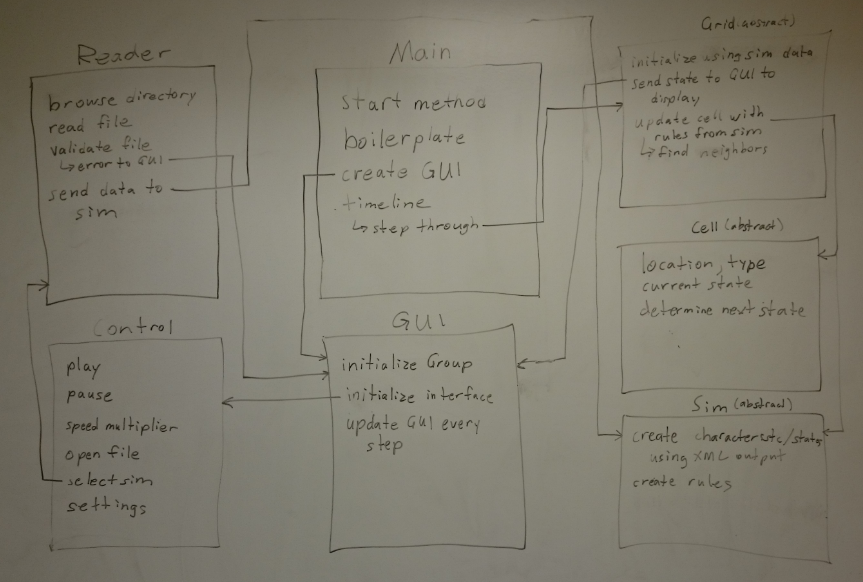 Reader
browse directory
read file
validate file
↳ error to GUI
send data to
sim
Main
start method
boilerplate
create GUI
timeline
↳ step through
Grid (abstract)
initialize using sim data
send state to GUI to
display
update cell with
rules from sim
↳ find neighbors
Cell (abstract)
location, type
current state
determine next state
Control
play
pause
speed multiplier
open file
select sim
settings
GUI
initialize Group
initialize interface
update GUI every
step
Sim (abstract)
create characteristic/states
using XML output
create rules